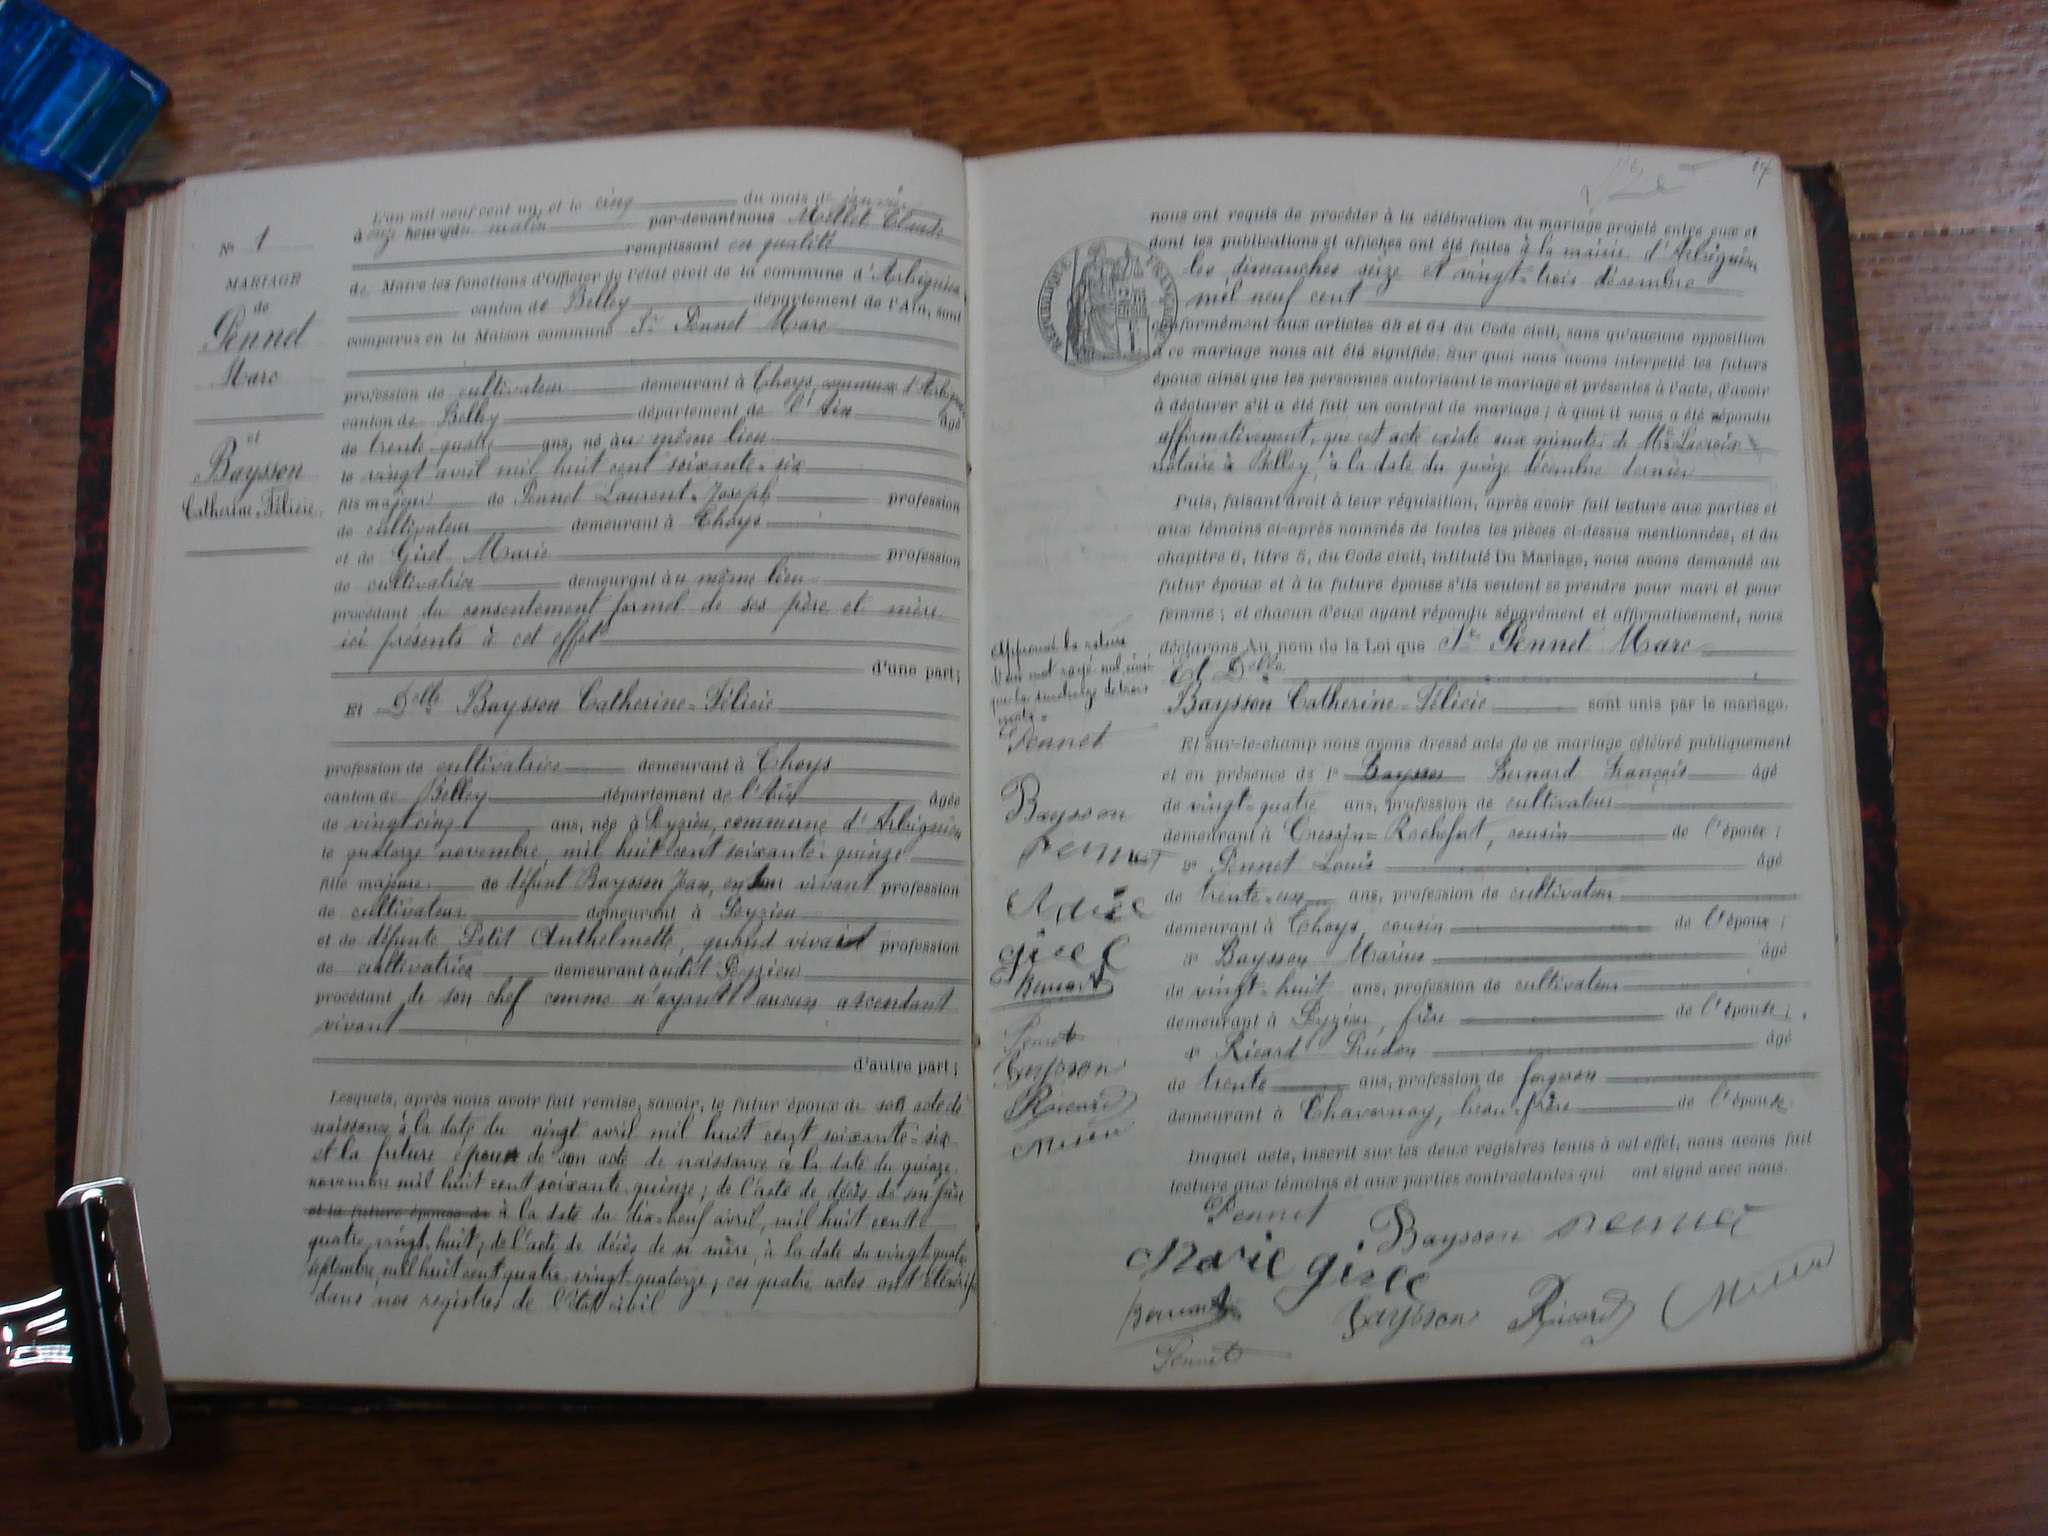 N° 1
MARIAGE
de
Pennet
Marc
et
Baysson
Catherine-Félicie
L'an mil neuf cent un, et le cinq du mois de janvier
à onze heures du matin par-devant nous Millet Claude
remplissant en qualité
de Maire les fonctions d'Officier de l'état civil de la commune d'Arbignieu
canton de Belley département de l'Ain, sont
comparus en la Maison commune Sr Pennet Marc
profession de cultivateur demeurant à Thoys, commune d'Arbignieu
canton de Belley département de l'Ain âgé
de trente-quatre ans, né au même lieu
le vingt avril mil huit cent soixante-six
fils majeur de Pennet Laurent-Joseph profession
de cultivateur demeurant à Thoys
et de Girel Marie profession
de cultivatrice demeurant au même lieu
procédant du consentement formel de ses père et mère
ici présents à cet effet
d'une part;
Et Delle Baysson Catherine-Félicie
profession de cultivatrice demeurant à Thoys
canton de Belley département de l'Ain âgée
de vingt cinq ans, née à Peyzieu, commune d'Arbignieu
le quatorze novembre, mil huit cent soixante-quinze
fille majeure de défunt Baysson Jean, en son vivant profession
de cultivateur demeurant à Peyzieu
et de défunte Petit Anthelmette, quand vivait profession
de cultivatrice demeurant audit Peyzieu
procédant de son chef comme n'ayant aucun ascendant
vivant
d'autre part;
Lesquels, après nous avoir fait remise, savoir, le futur époux de son acte de
naissance à la date du vingt avril mil huit cent soixante-six
et la future épouse de son acte de naissance à la date du quinze
novembre mil huit cent soixante-quinze; de l'acte de décès de son père
et la future épouse de à la date du dix-neuf avril, mil huit cent
quatre-vingt-huit; de l'acte de décès de sa mère, à la date du vingt-quatre
septembre, mil huit cent quatre-vingt quatorze; ces quatre actes ont été vérifiés
dans nos registres de l'état civil
67
RÉPUBLIQUE FRANÇAISE
nous ont requis de procéder à la célébration du mariage projeté entre eux et
dont les publications et affiches ont été faites à la mairie d'Arbignieu
les dimanches seize et vingt-trois décembre
mil neuf cent
conformément aux articles 63 et 64 du Code civil, sans qu'aucune opposition
à ce mariage nous ait été signifiée. Sur quoi nous avons interpellé les futurs
époux ainsi que les personnes autorisant le mariage et présentes à l'acte, d'avoir
à déclarer s'il a été fait un contrat de mariage; à quoi il nous a été répondu
affirmativement, que cet acte existe aux minutes de Me Lacroix
notaire à Belley, à la date du quinze décembre dernier
Puis, faisant droit à leur réquisition, après avoir fait lecture aux parties et
aux témoins ci-après nommés de toutes les pièces ci-dessus mentionnées, et du
chapitre 6, titre 5, du Code civil, intitulé Du Mariage, nous avons demandé au
futur époux et à la future épouse s'ils veulent se prendre pour mari et pour
femme; et chacun d'eux ayant répondu séparément et affirmativement, nous
déclarons Au nom de la Loi que Sr Pennet Marc
Et Delle
Baysson Catherine-Félicie sont unis par le mariage.
Et sur-le-champ nous avons dressé acte de ce mariage célébré publiquement
et en présence de 1° Baysson Bernard François âgé
de vingt-quatre ans, profession de cultivateur
demeurant à Cressin-Rochefort, cousin de l'épouse;
2° Pennet Louis âgé
de trente-un ans, profession de cultivateur
demeurant à Thoys, cousin de l'époux;
3° Baysson Marius âgé
de vingt-huit ans, profession de cultivateur
demeurant à Peyzieu, frère de l'épouse;
4° Ricard Prudon âgé
de trente ans, profession de forgeron
demeurant à Chavornay, beau-frère de l'épouse
Duquel acte, inscrit sur les deux registres tenus à cet effet, nous avons fait
lecture aux témoins et aux parties contractantes qui ont signé avec nous.
Approuvé la rature
d'un mot rayé nul ainsi
que la surcharge de trois
mots
Pennet
Baysson
Pennet
girel
Bernard
Pennet
Baysson
Ricard
Millet
Pennet
Baysson Pennet
Marie girel
Bernard Baysson Ricard Millet
Pennet